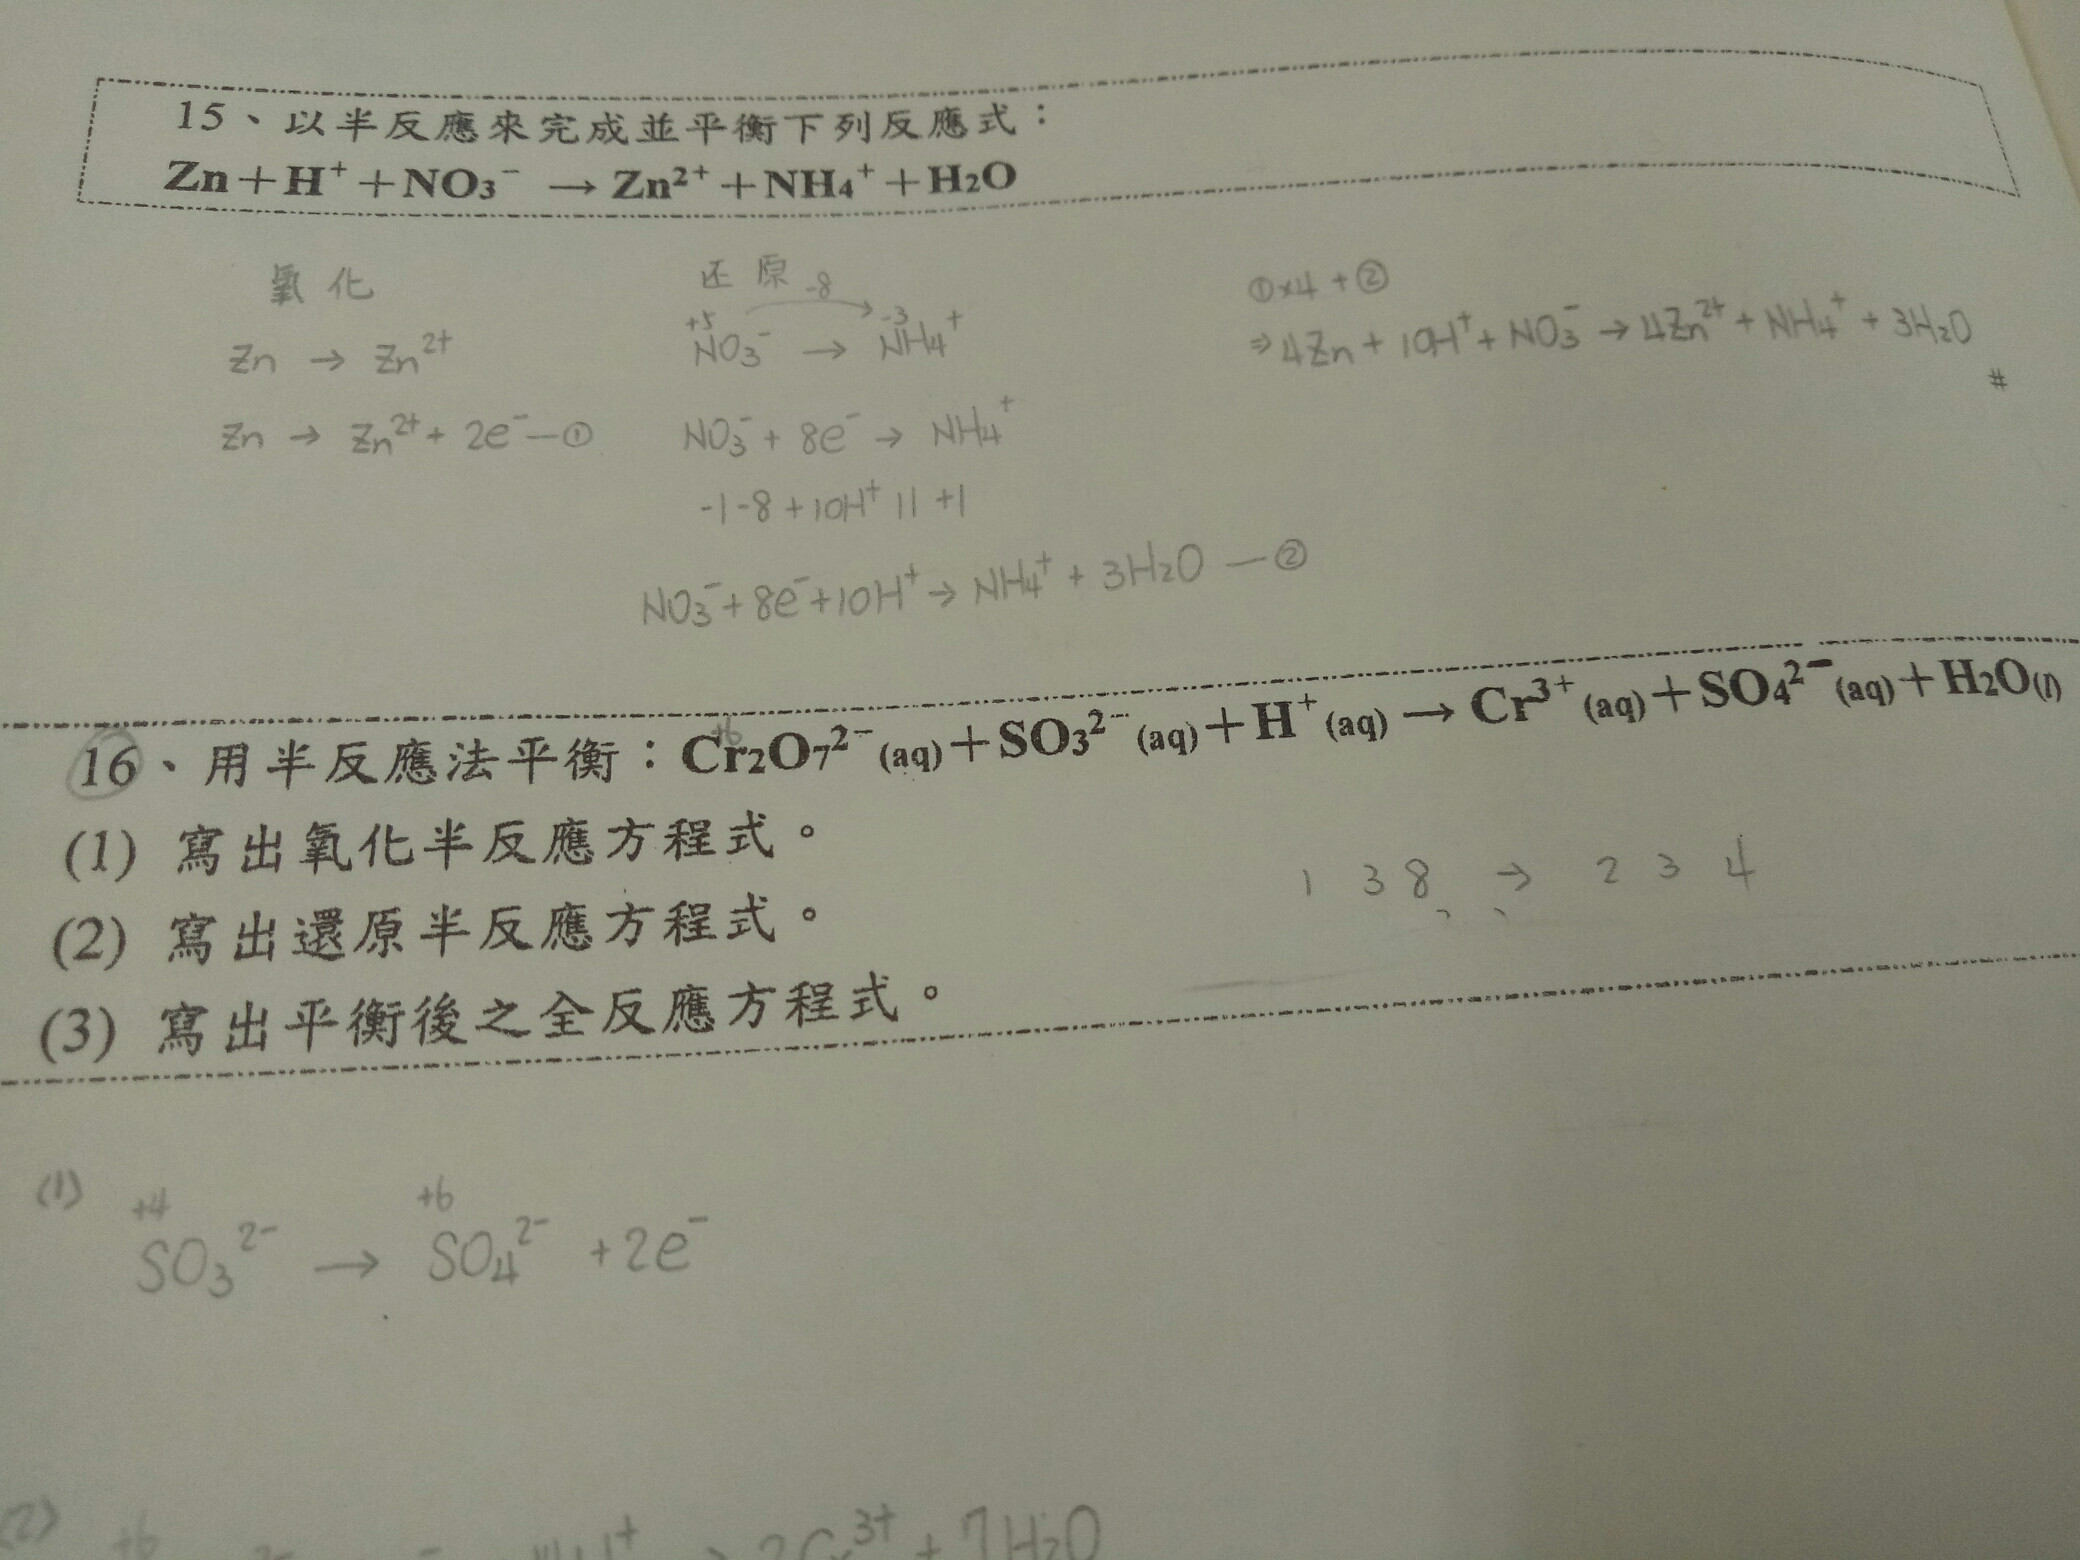 15、以半反應來完成並平衡下列反應式：
Zn＋H⁺＋NO₃⁻ → Zn²⁺＋NH₄⁺＋H₂O
氧化
Zn → Zn²⁺
Zn → Zn²⁺ + 2e⁻ —①
还原 -8
+5 -3
NO₃⁻ → NH₄⁺
NO₃⁻ + 8e⁻ → NH₄⁺
-1-8+10H⁺ || +1
NO₃⁻+8e⁻+10H⁺→ NH₄⁺ + 3H₂O —②
①×4 + ②
⇒ 4Zn + 10H⁺ + NO₃⁻ → 4Zn²⁺ + NH₄⁺ + 3H₂O
#
16、用半反應法平衡：Cr₂O₇²⁻(aq)＋SO₃²⁻(aq)＋H⁺(aq) → Cr³⁺(aq)＋SO₄²⁻(aq)＋H₂O(l)
+6
(1) 寫出氧化半反應方程式。
(2) 寫出還原半反應方程式。
(3) 寫出平衡後之全反應方程式。
1 3 8 → 2 3 4
(1)
+4 +6
SO₃²⁻ → SO₄²⁻ + 2e⁻
(2)
+6
2Cr³⁺ + 7H₂O